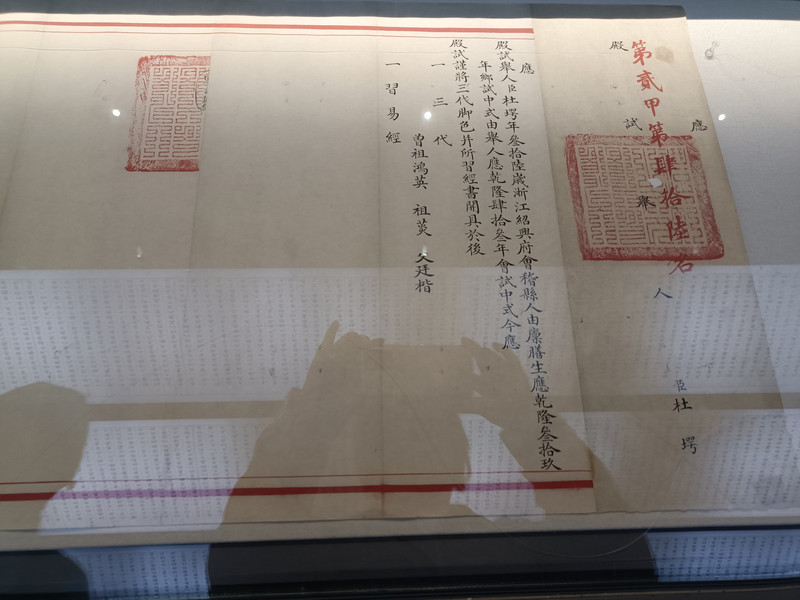 第貳甲第肆拾陸名
應
殿試舉人臣杜堮
應
殿試舉人臣杜堮年叁拾陸歲浙江紹興府會稽縣人由廩膳生應乾隆叁拾玖
年鄉試中式由舉人應乾隆肆拾叁年會試中式今應
殿試謹將三代脚色并所習經書開具於後
一三代
曾祖鴻英 祖莢 父廷楷
一習易經